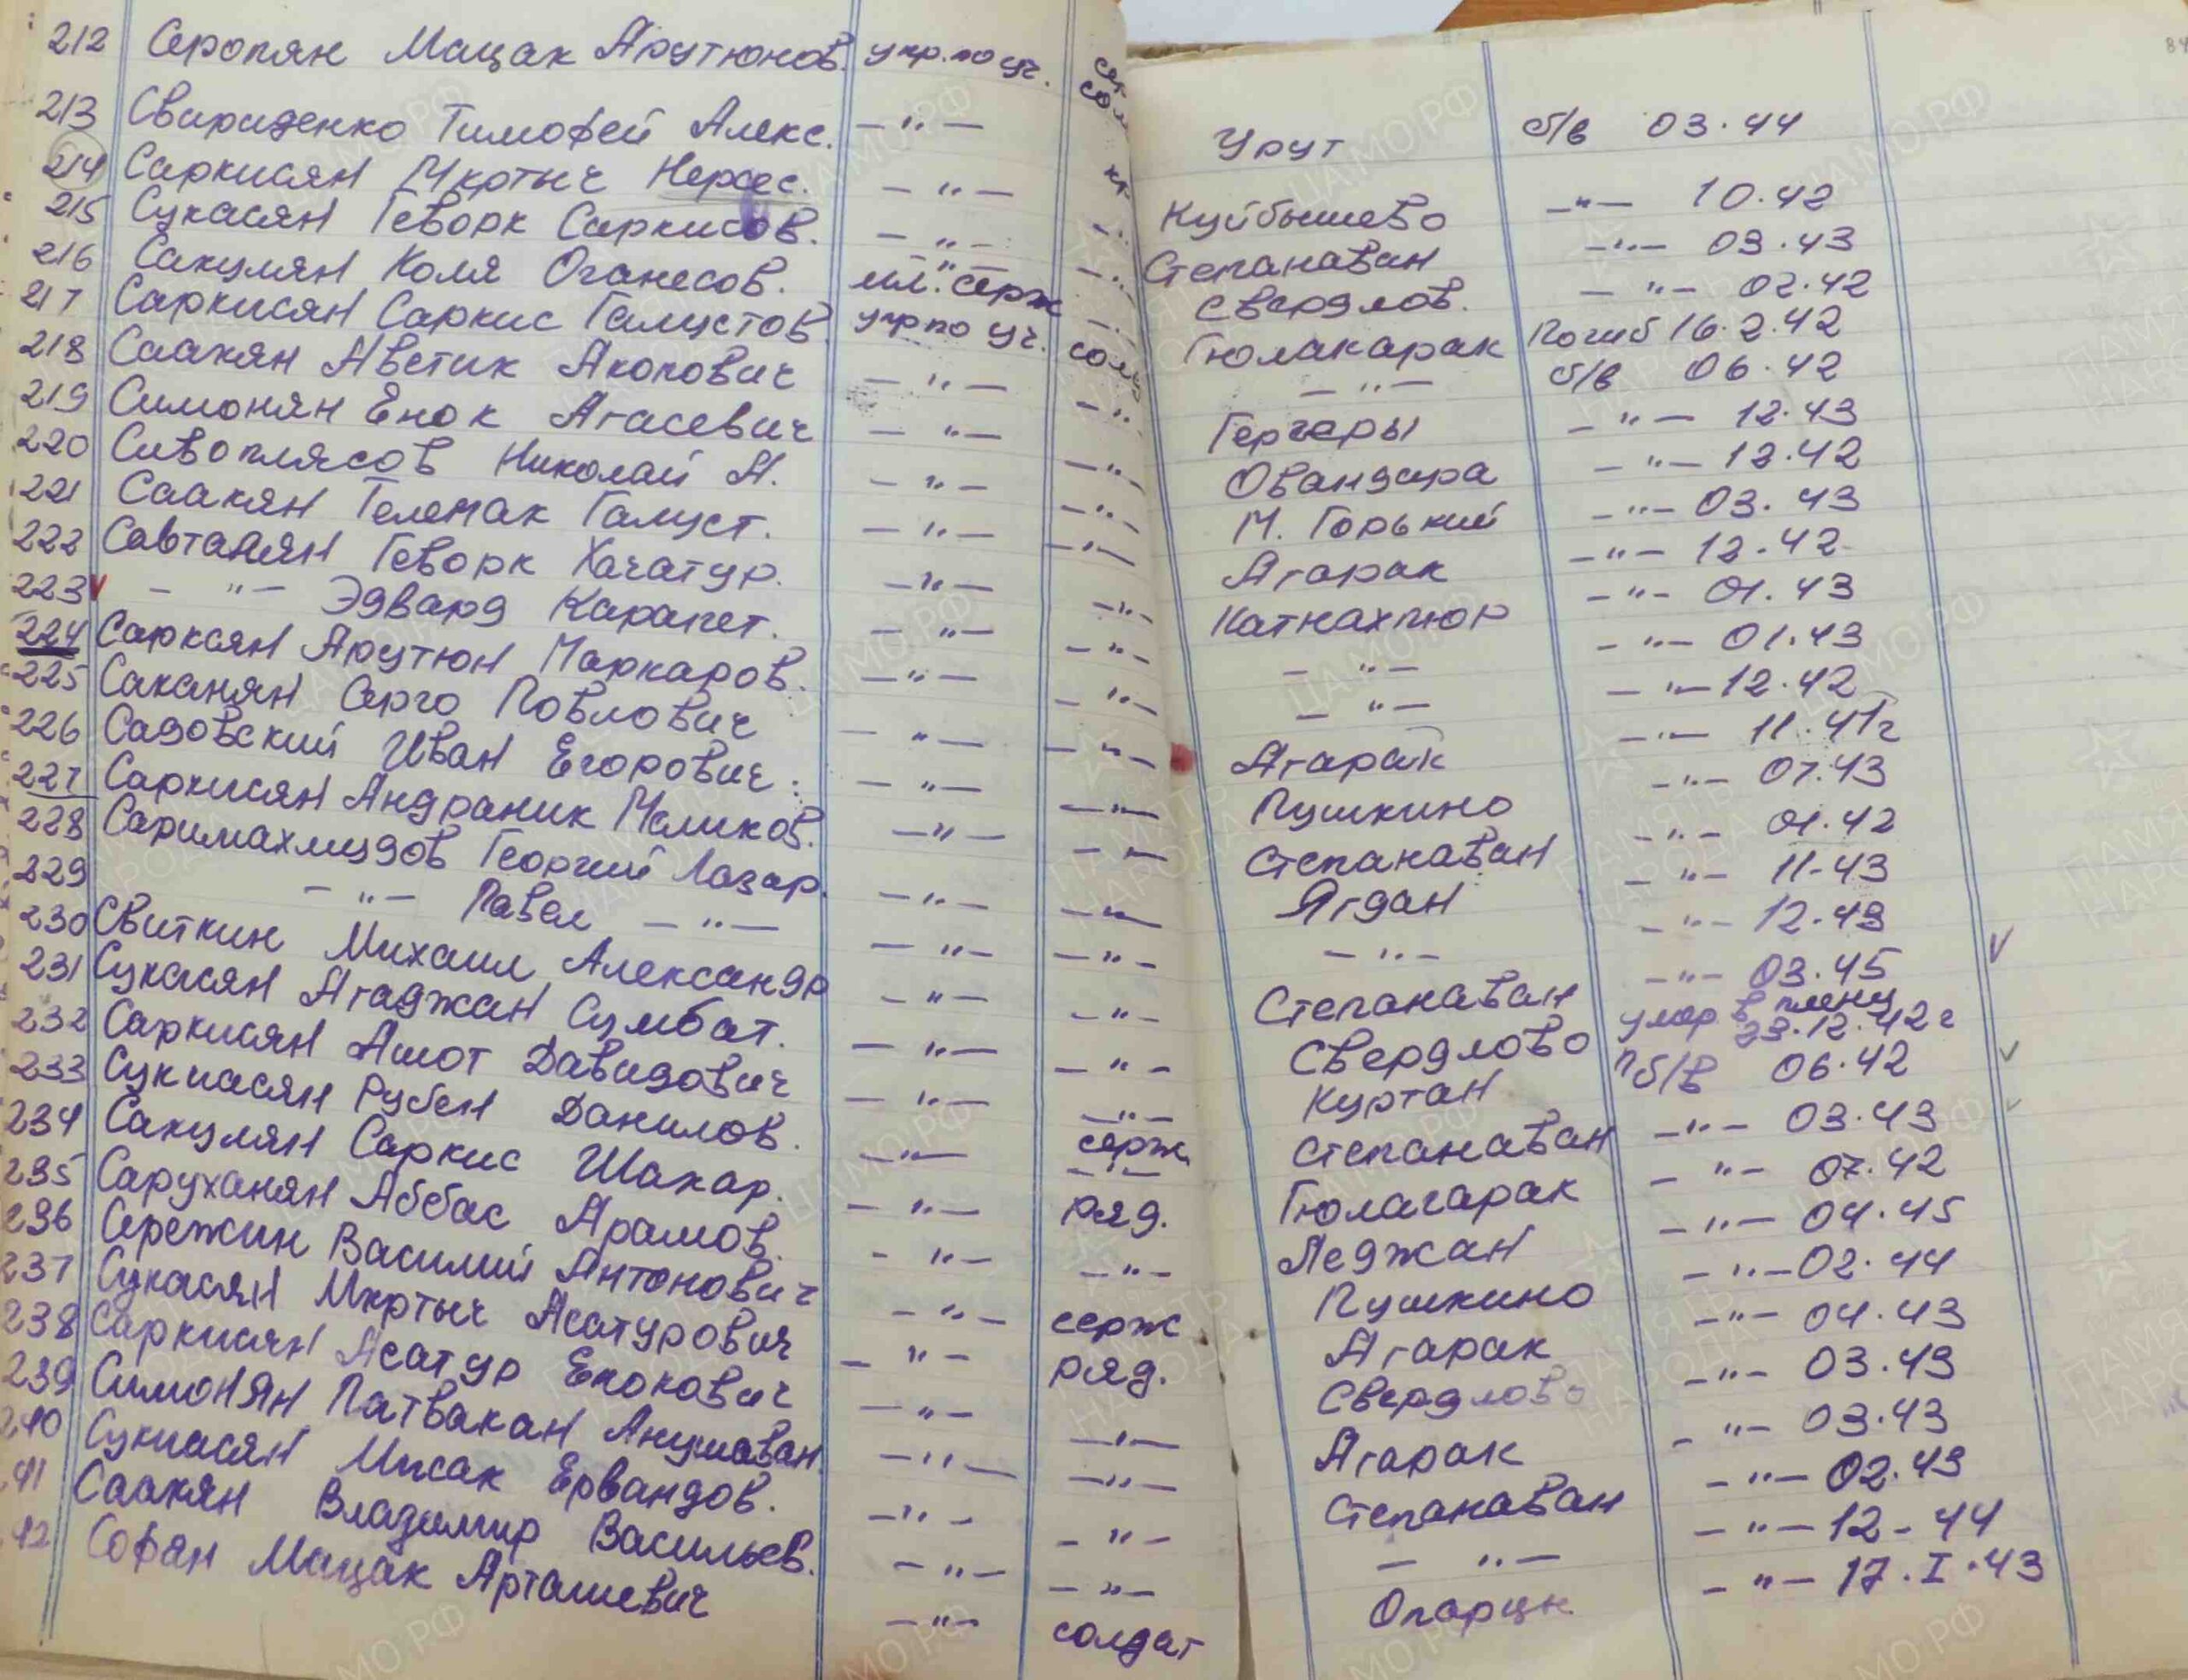 212 Серопян Мацак Арутюнов. укр. по уч.
213 Свириденко Тимофей Алекс. —"— Урут б/в 03.44
214 Саркисян Мкртыч Нерсес. —"— Куйбышево —"— 10.42
215 Сукасян Геворк Саркисов. —"— Степанаван —"— 03.43
216 Сакулян Коля Оганесов. —"— Свердлов. —"— 02.42
217 Саркисян Саркис Галустов. мл. серж Гюлакарак Погиб 16.2.42
218 Саакян Аветик Акопович укр по уч. солд —"— б/в 06.42
219 Симонян Енок Агасевич —"— —"— Гергеры —"— 12.43
220 Сивоплясов Николай А. —"— —"— Овандара —"— 12.42
221 Саакян Телемак Галуст. —"— —"— М. Горький —"— 03.43
222 Савтанян Геворк Хачатур. —"— —"— Агарак —"— 12.42
223 —"— Эдвард Карапет. —"— —"— Катнахпюр —"— 01.43
224 Сарксян Арутюн Маркаров. —"— —"— —"— —"— 01.43
225 Саканян Серго Повлович —"— —"— —"— —"— 12.42
226 Садовский Иван Егорович. —"— —"— Агарак —"— 11.41г
227 Саркисян Андраник Маликов. —"— —"— Пушкино —"— 07.43
228 Саримахмудов Георгий Лазар. —"— —"— Степанаван —"— 01.42
229 —"— Павел —"— —"— —"— Ягдан —"— 11-43
230 Свиткин Михаил Александр —"— —"— —"— —"— 12.43
231 Сукасян Агаджан Сумбат. —"— —"— Степанаван —"— 03.45
232 Саркисян Ашот Давидович —"— —"— Свердлово умер в плену 23.12.42г
233 Сукиасян Рубен Данилов. —"— —"— Куртан Пб/в 06.42
234 Сакулян Саркис Шакар. —"— серж Степанаван —"— 03.43
235 Саруханян Аббас Арамов. —"— ряд. Гюлагарак —"— 07.42
236 Сережкин Василий Антонович —"— —"— Леджан —"— 04.45
237 Сукасян Мкртыч Асатурович —"— серж Пушкино —"— 02.44
238 Саркисян Асатур Енокович —"— ряд. Агарак —"— 04.43
239 Симонян Патвакан Анушаван —"— —"— Свердлово —"— 03.43
240 Сукиасян Мисак Ервандов. —"— —"— Агарак —"— 03.43
41 Саакян Владимир Васильев. —"— —"— Степанаван —"— 02.43
42 Софян Мацак Арташевич —"— —"— —"— —"— 12-44
—"— солдат Опарцк —"— 17.I.43